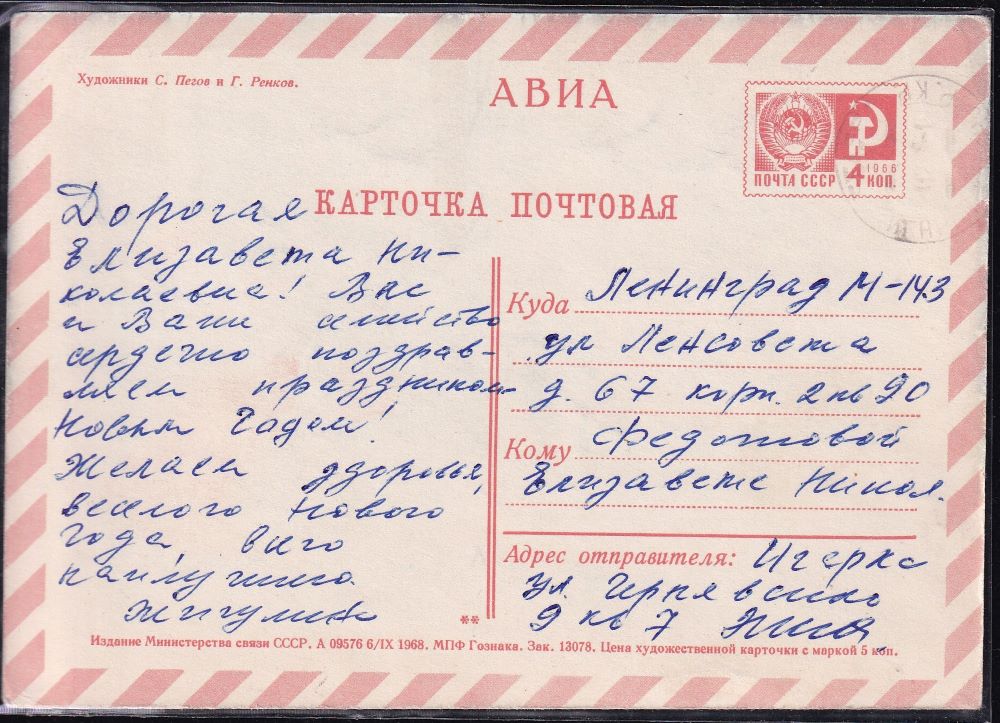 Художники С. Пегов и Г. Ренков.
АВИА
1966
ПОЧТА СССР 4 КОП.
КАРТОЧКА ПОЧТОВАЯ
Дорогая
Елизавета Ни-
колаевна! Вас
и Ваши семейство
сердечно поздрав-
ляем праздником
Новым Годом!
Желаем здоровья,
веселого Нового
Года, всего
наилучшего
Жигулин
Куда Ленинград М-143
ул Ленсовета
д. 67 корп. 2 кв 90
Кому Федотовой
Елизавете Никол.
Адрес отправителя: Игарка
ул.
9 кв 7
**
Издание Министерства связи СССР. А 09576 6/IX 1968. МПФ Гознака. Зак. 13078. Цена художественной карточки с маркой 5 коп.